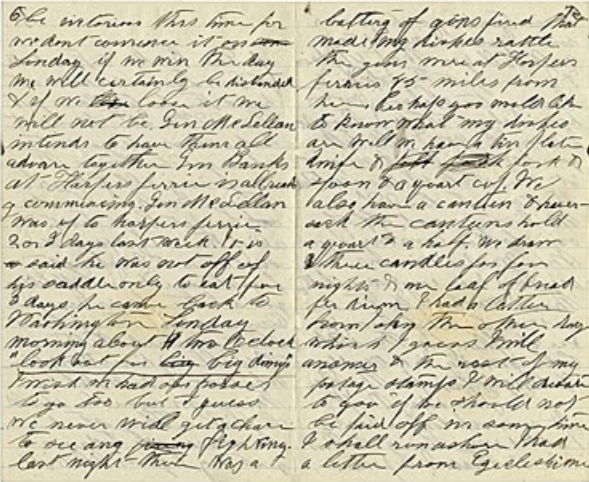 6 be victorious this time for
we dont comence it on
Sunday if we win the day
we will certainly be disbanded
& if we loose it we
will not be. Gen McLellan
intends to have them all
advance together Gen Banks
at Harpers ferrie is allready
commencing. Gen McLellan
was up to harpers ferrie
2 or 3 days last week. It is
said he was not off of
his saddle only to eat for
3 days he came back to
Washington Sunday
morning about two Oclock
"look out for big doings"
I wish we had
to go too but I guess
we never will get a chance
to see any fighting.
last night there was a
battery of guns fired that
made my dishes rattle
the guns were at Harpers
ferrie 75 miles from
here. Perhaps you would like
to know what my dishes
are well we have a tin plate
knife & fork &
spoon & a quart cup. We
also have a canteen & haver-
sack the canteens hold
a quart & a half. We draw
three candles for four
nights & one loaf of bread
per diem. I had a letter
from the other day
which I guess I will
answer & the rest of my
postage stamps I will
to you if we should not
be paid off in some time
I shall run ashore I had
a letter from